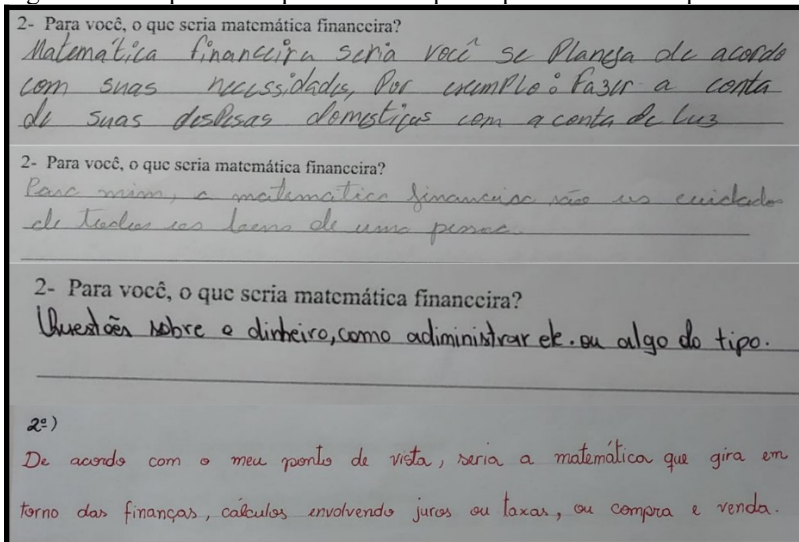 2- Para você, o que seria matemática financeira?
Matemática financeira seria você se Planeja de acordo
com suas necessidades, Por exemplo: fazer a conta
de suas despisas domesticas com a conta de luz
2- Para você, o que seria matemática financeira?
Para mim, a matematica financeira são os cuidados
de todos os bens de uma pessoa.
2- Para você, o que seria matemática financeira?
Questões sobre o dinheiro, como adiministrar ele. ou algo do tipo.
2ª)
De acordo com o meu ponto de vista, seria a matemática que gira em
torno das finanças, cálculos envolvendo juros ou taxas, ou compra e venda.